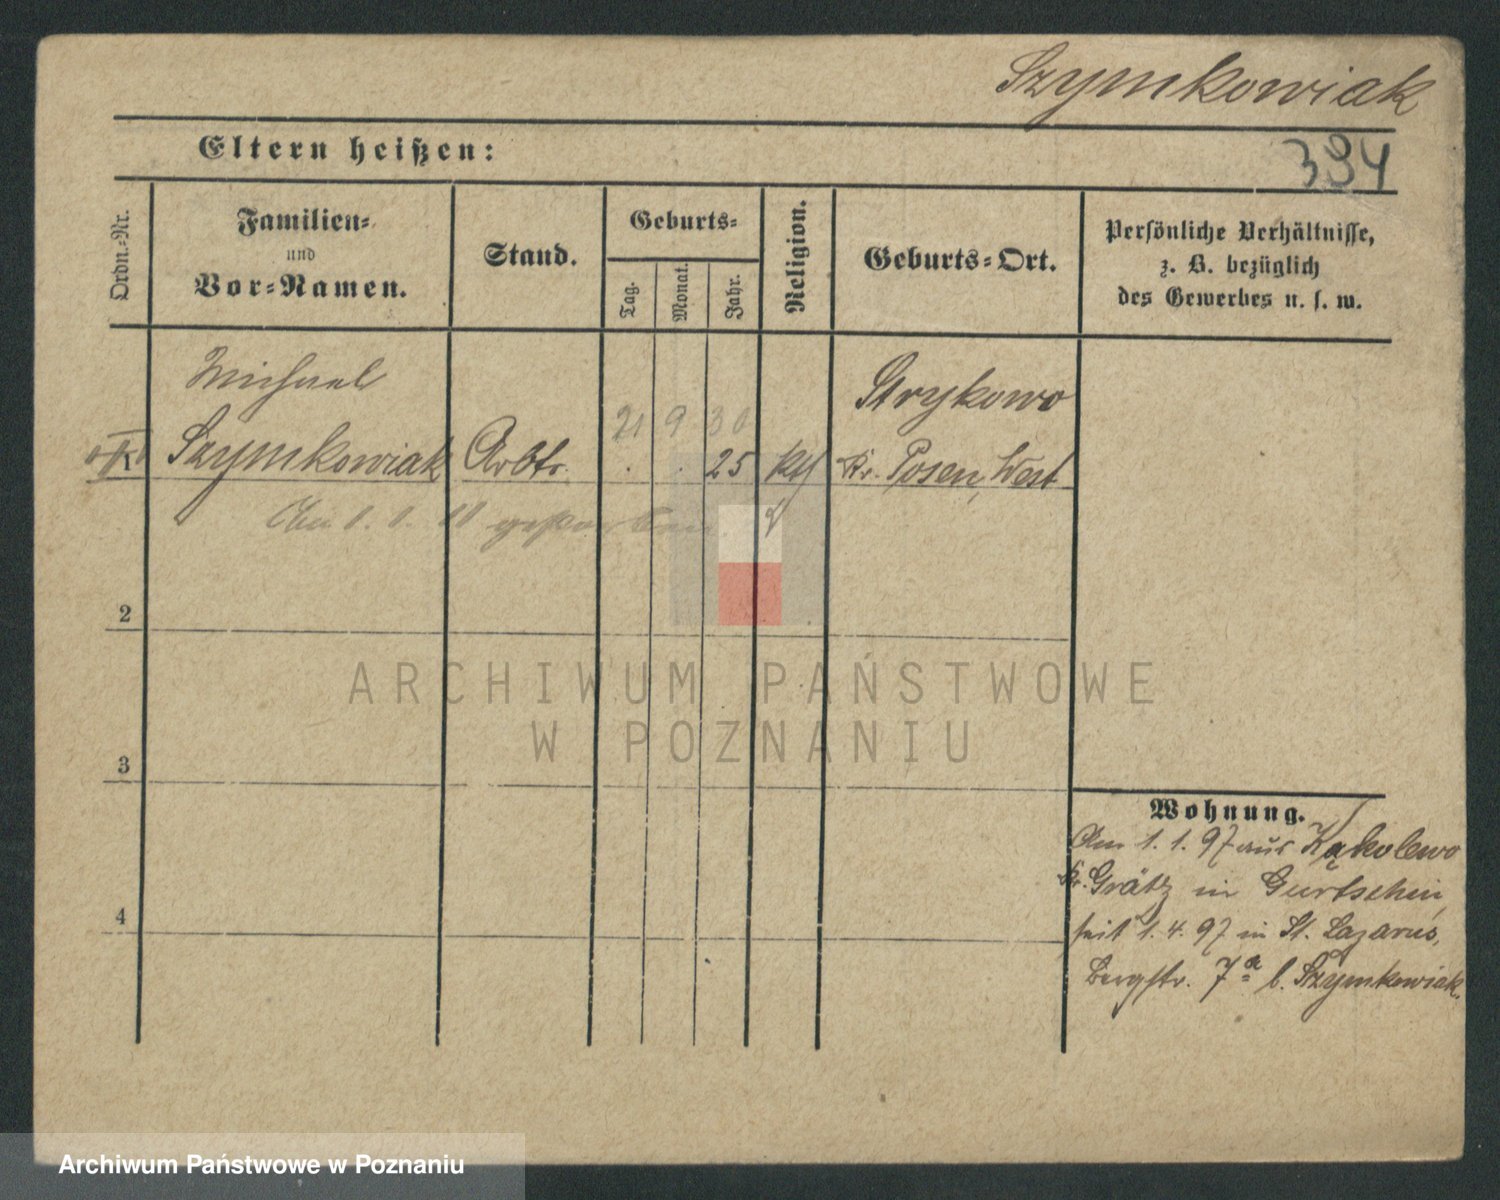 Szymkowiak
Eltern heißen:
394
Ordn.-Nr.
Familien-
und
Vor-Namen.
Stand.
Geburts-
Tag.
Monat.
Jahr.
Religion.
Geburts-Ort.
Persönliche Verhältnisse,
z. B. bezüglich
des Gewerbes u. s. w.
Michael
Szymkowiak
Arbtr.
21 9 30
25
kth
Strykowo
Kr. Posen, West
gestorben
2
3
4
Wohnung.
Am 1. 1. 97 aus Kąkolewo
Kr. Grätz in Gurtschin,
seit 1. 4. 97 in St. Lazarus,
Bergstr. 7a b. Szymkowiak.
ARCHIWUM PAŃSTWOWE
W POZNANIU
Archiwum Państwowe w Poznaniu